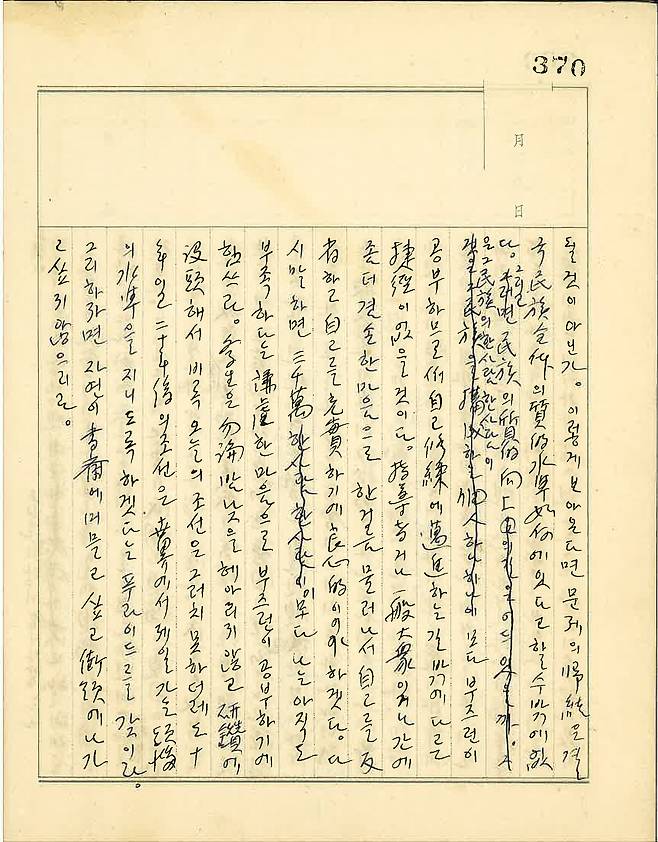 370
月
日
될 것이 아닌가. 이렇게 보아온다면 문제의 歸結은 결
국 民族全体의 質的 水準 如何에 있다고 할 수 밖에 없
다. 그러면 民族의 質的 向上
은 그 民族의 한사람 한사람이
民族을 構成하는 個人 하나하나이 모다 부즈런이
공부하므로써 自己修練에 邁進하는 길 밖에 다른
捷徑이 없을 것이다. 指導者거나 一般大衆이거나 간에
좀더 겸손한 마음으로 한걸음 물러나서 自己를 反
省하고 自己를 充實하기에 良心的이어야 하겠다. 다
시 말하면 三千萬 한사람 한사람이 모다 나는 아직도
부족하다는 謙虛한 마음으로 부즈런이 공부하기에
힘쓰라. 學生은 勿論 밤낮을 헤아리지 않고 硏鑽에
沒頭해서 비록 오늘의 조선은 그러치 못하더래도 十
年 이일 二十年後의 조선은 世界에서 제일가는 頭腦
의 水準을 지니도록 하겠다는 푸라이드를 갖이라.
그리하라면 자연이 書齋에 머물고 싶고 街頭에 나가
고 싶지 않으리라.